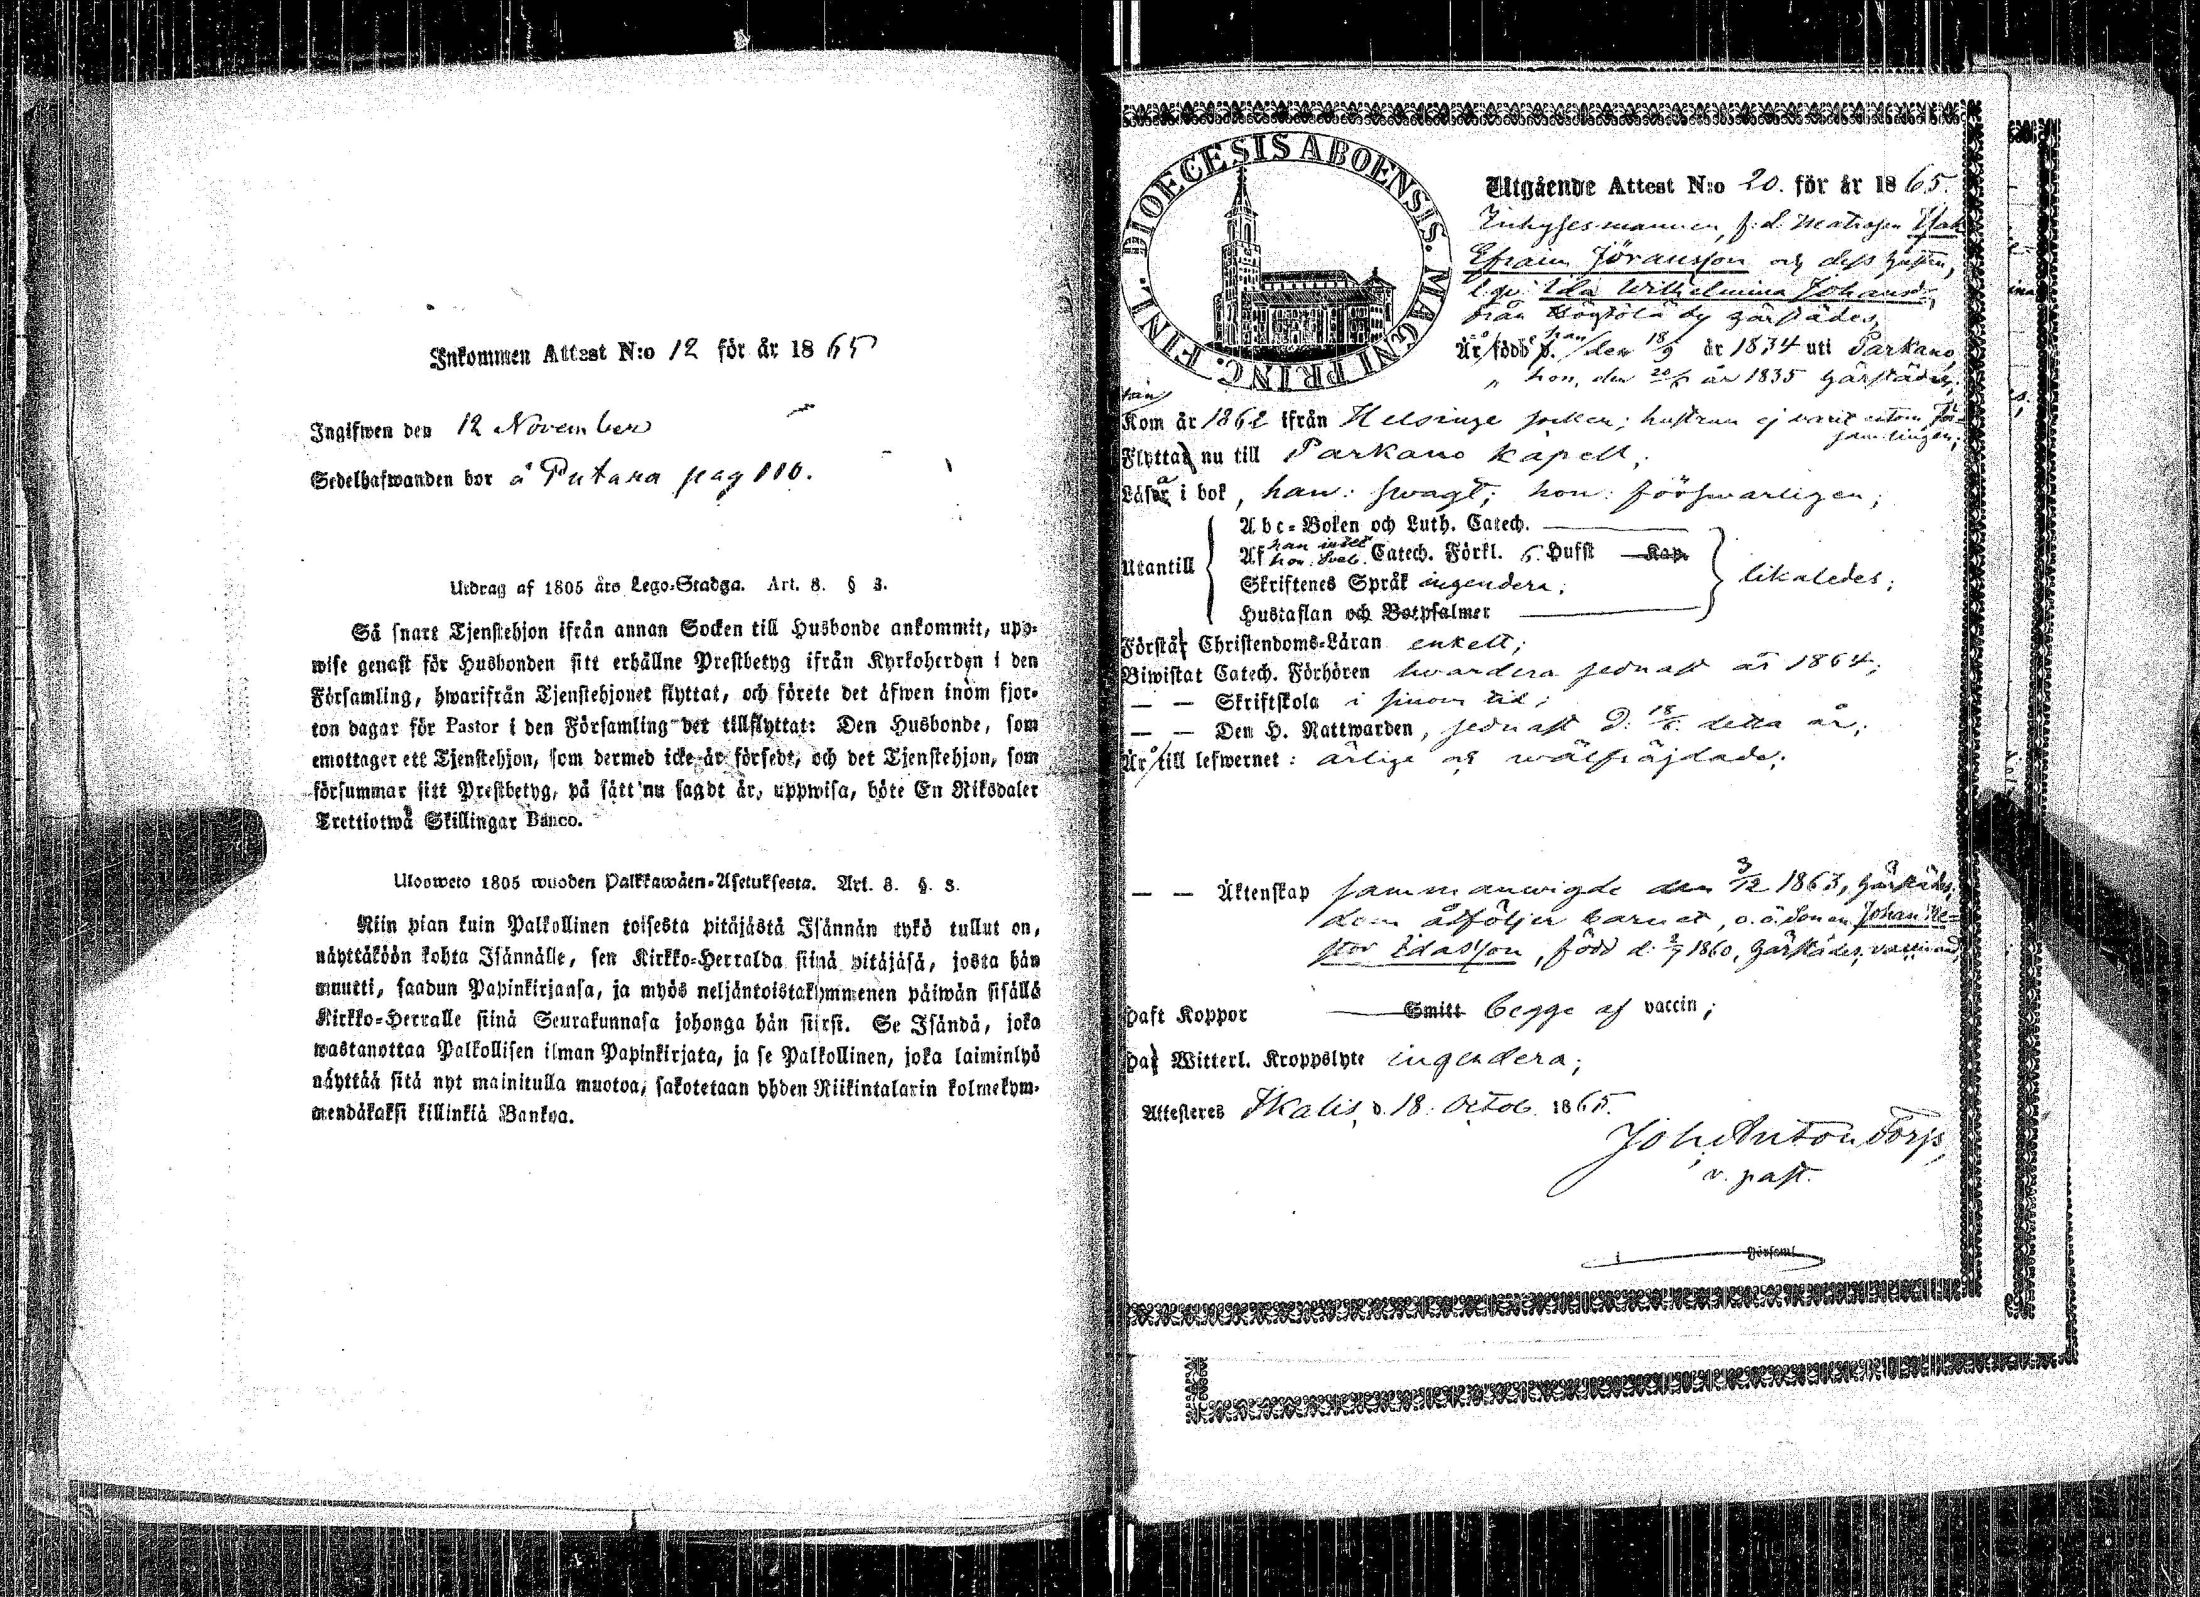 Inkommen Attest N:o 12 för år 1865
Ingifwen den 12 November
Sedelhafwanden bor å Putana pag 110.
Utdrag af 1805 års Lego-Stadga. Art. 8. § 3.
Så snart Tjenstehjon ifrån annan Socken till Husbonde ankommit, upp-
wise genast för Husbonden sitt erhållne Prestbetyg ifrån Kyrkoherden i den
Församling, hwarifrån Tjenstehjonet flyttat, och förete det äfwen inom fjor-
ton dagar för Pastor i den Församling det tillflyttat: Den Husbonde, som
emottager ett Tjenstehjon, som dermed icke är försedt, och det Tjenstehjon, som
försummar sitt Prestbetyg, på sätt nu sagdt är, uppwisa, böte En Riksdaler
Trettiotwå Skillingar Banco.
Ulosweto 1805 wuoden Palkkawäen-Asetuksesta. Art. 8. §. 3.
Niin pian kuin Palkollinen toisesta pitäjästä Isännän tykö tullut on,
näyttäköön kohta Isännälle, sen Kirkko-Herralda siinä pitäjäsä, josta hän
muutti, saadun Papinkirjansa, ja myös neljäntoistakymmenen päiwän sisällä
Kirkko-Herralle siinä Seurakunnasa johonga hän siirsi. Se Isändä, joka
wastanottaa Palkollisen ilman Papinkirjata, ja se Palkollinen, joka laiminlyö
näyttää sitä nyt mainitulla muotoa, sakotetaan yhden Riikintalarin kolmekym-
mendäkaksi killinkiä Bankoa.
DIOECESIS ABOENSIS. MAGNI PRINC. FINL.
Utgående Attest N:o 20. för år 1865.
Inhysesmannen, f. d. Matrosen Isak
Efraim Jöransson och dess hustru,
l. qv. Ida Wilhelmina Johansd:r,
från by härstädes,
Är född d. han den 18/9 år 1834 uti Parkano,
" hon, den år 1835 härstädes,
han
Kom år 1862 ifrån Helsinge socken; hustrun ej varit utom för-
samlingen;
Flyttar nu till Parkano kapell,
Läser i bok, han: swagt; hon: förswarligen;
Utantill
Abc-Boken och Luth. Catech.
Af han intet hon Sveb. Catech. Förkl. 6. Hufst Kap.
Skriftenes Språk ingendera;
Hustaflan och Botpsalmer
likaledes;
Förstår Christendoms-Läran enkelt;
Biwistat Catech. Förhören hwardera sednast år 1864;
— — Skriftskola i sinom tid;
— — Den H. Nattwarden, sednast d. detta år;
Är till lefwernet: ärlige och wälfräjdade;
— — Äktenskap sammanwigde den 3/12 1863, härstädes;
dem åtföljer barnet, o. ä. sonen Johan Ne-
stor Idasson, född d. 1860, härstädes, vaccinerad,
Haft Koppor Smitt begge af vaccin;
Har Witterl. Kroppslyte ingendera;
Attesteres Ikalis, d. 18. Octob. 1865.
Joh. Anton Forss,
v. past.
i Församl.